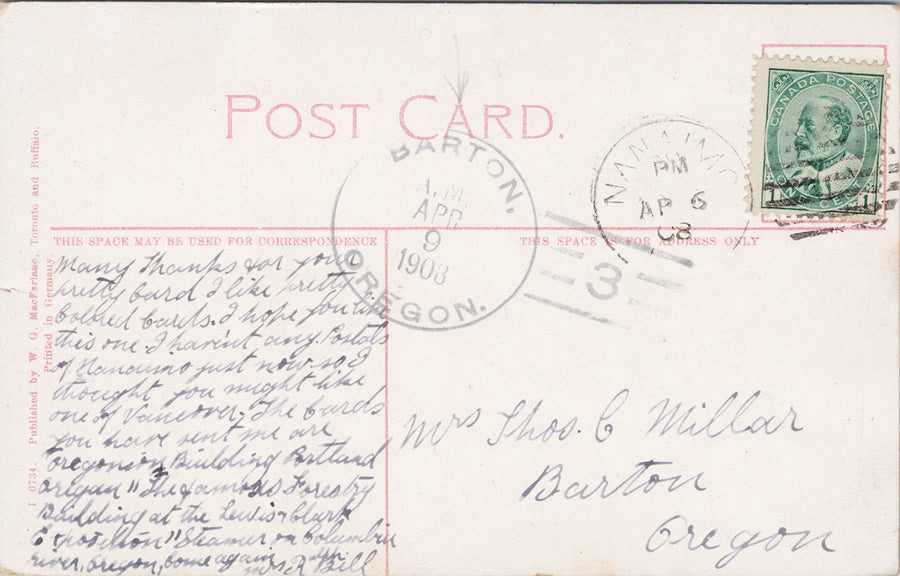 POST CARD.
CANADA POSTAGE
1 ONE CENT 1
NANAIMO
PM
AP 6
08
BARTON,
A.M.
APR
9
1908
OREGON.
3
THIS SPACE MAY BE USED FOR CORRESPONDENCE
THIS SPACE IS FOR ADDRESS ONLY
I 0734. Published by W. G. MacFarlane, Toronto and Buffalo.
Printed in Germany.
Many Thanks for your
pretty Card I like pretty
Colored Cards. I hope you like
this one. I havent any Postals
of Nanaimo just now so I
thought you might like
one of Vancover. The Cards
you have sent me are
Oregonion Building Portland
Oregan" The famous Forestry
Building at the Lewis & Clark
Exposition" Steamer on Columbia
river, Oregon, Come again
Mrs R Bell
Mrs Thos. C Millar
Barton
Oregon